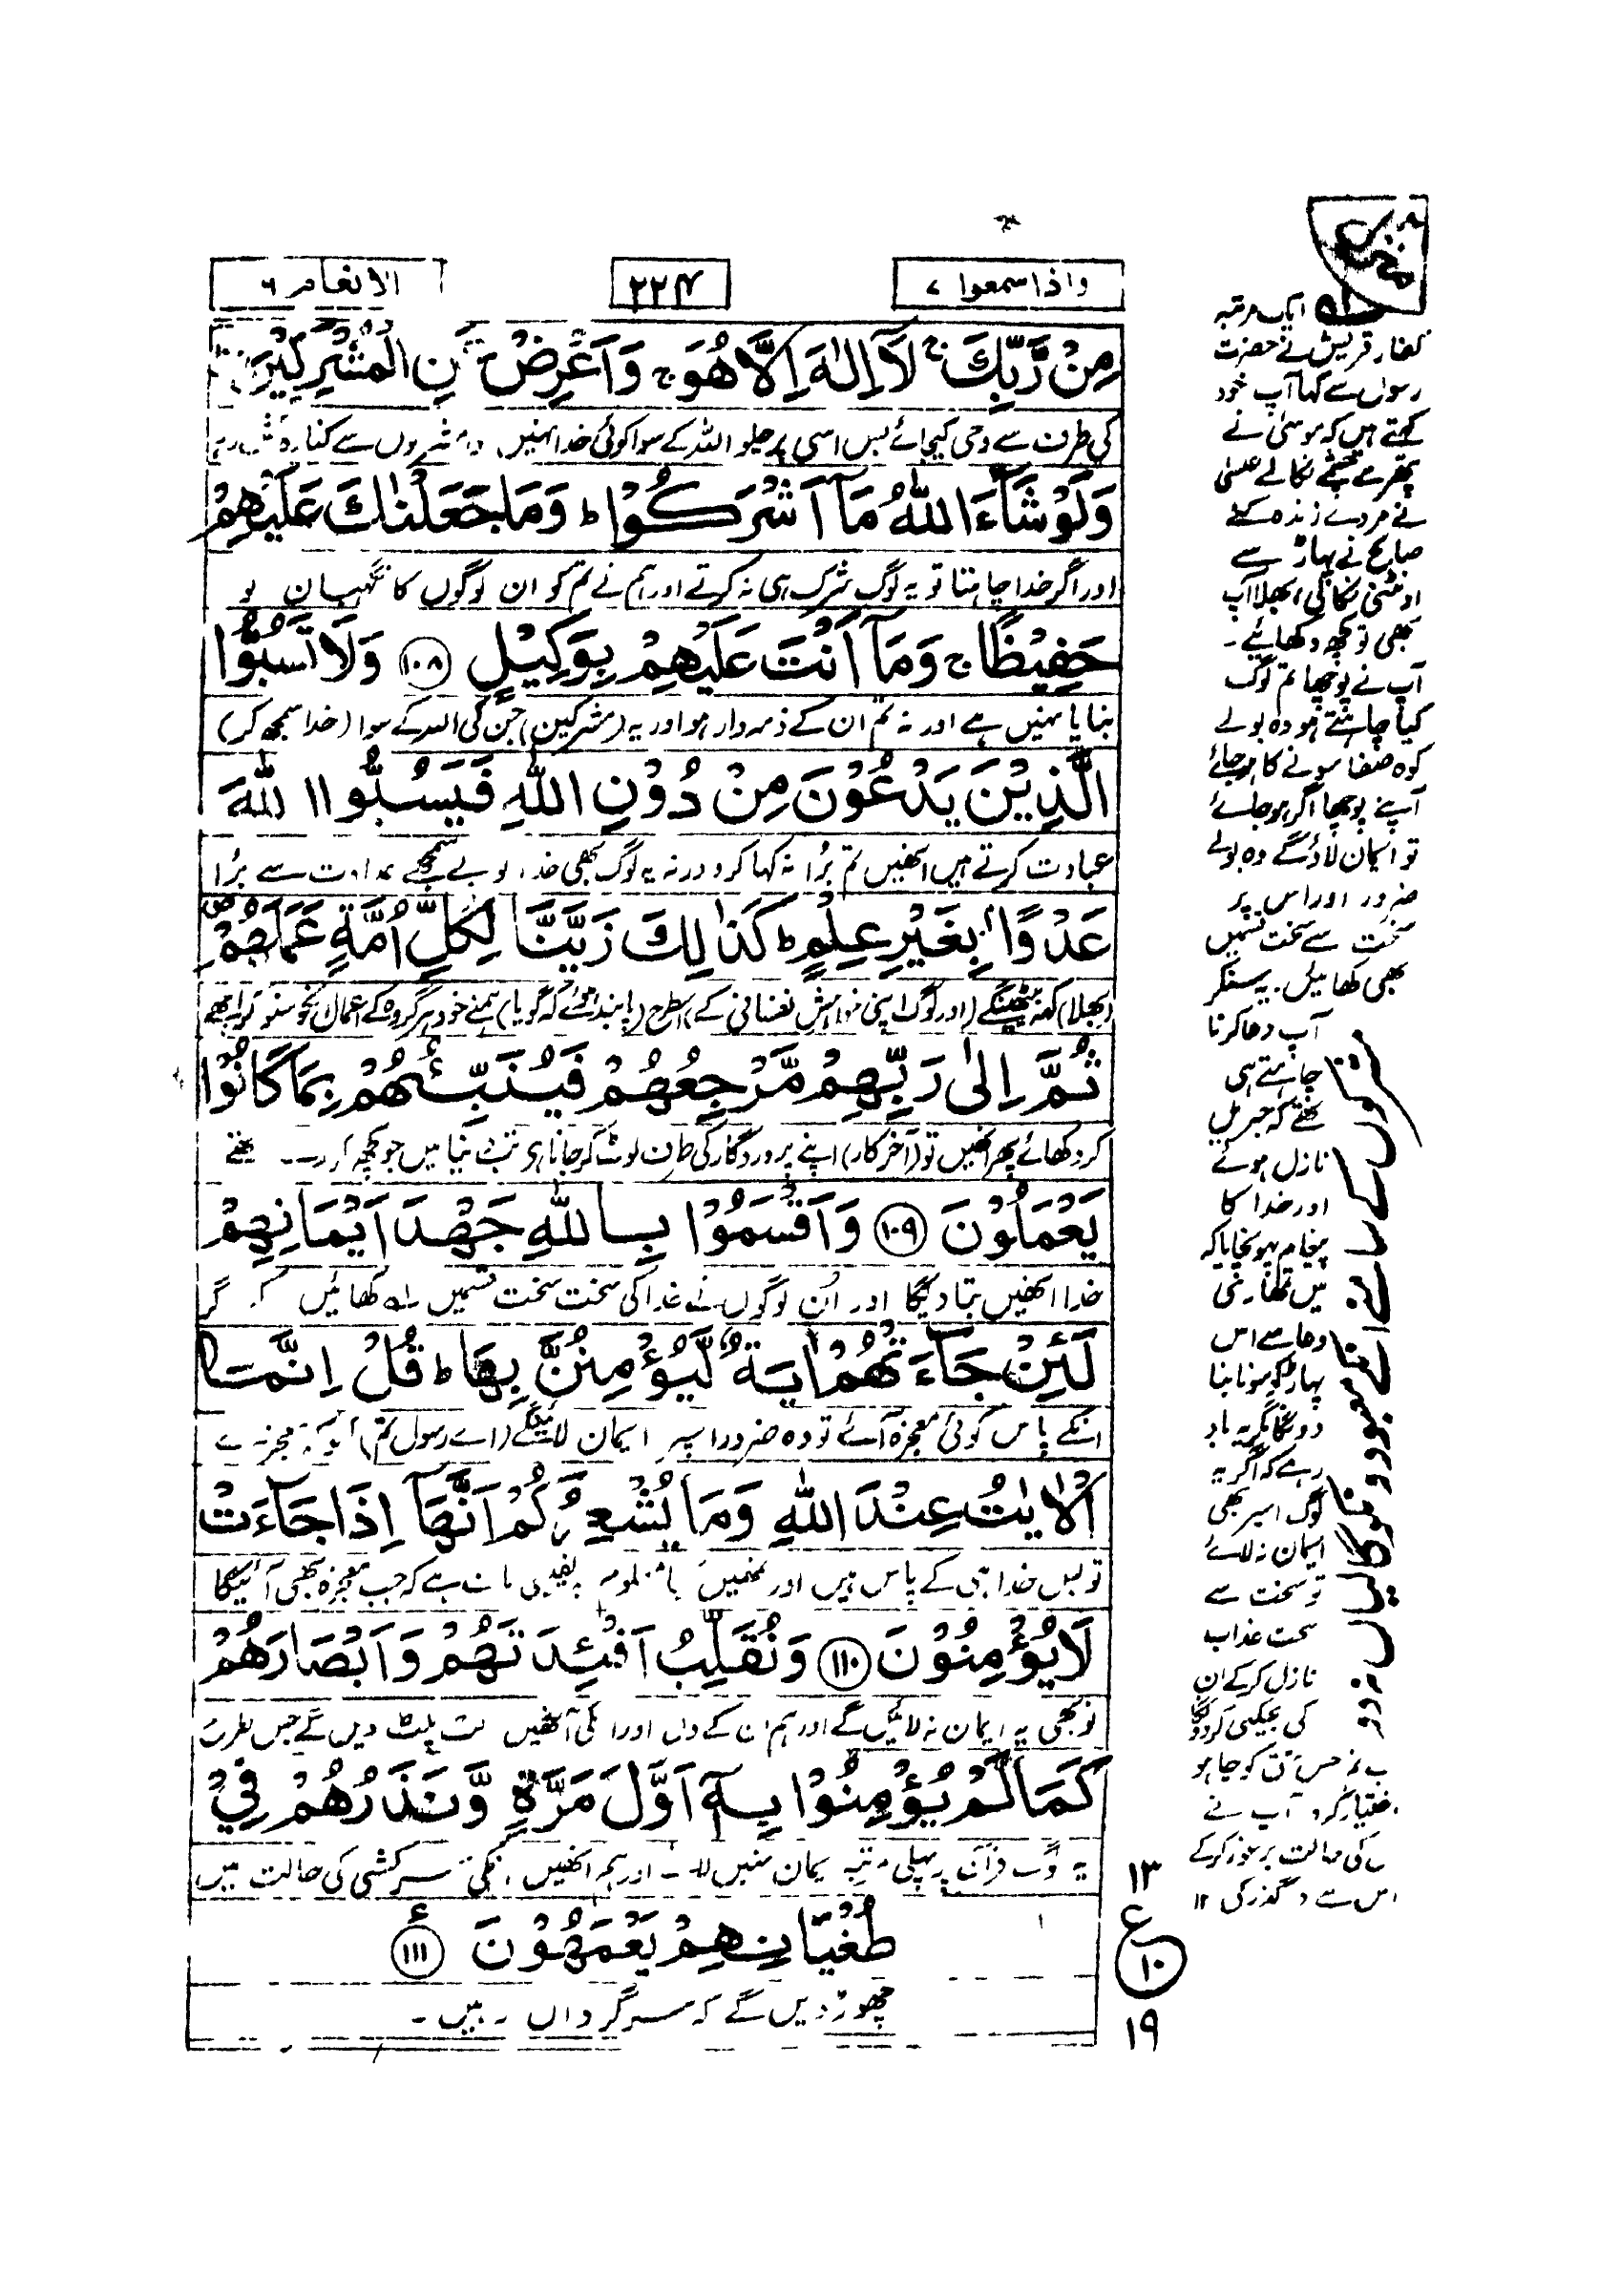 واذا سمعوا ۷
۲۲۴
الانعام ۶
مِنْ رَّبِّكَ ۚ لَاۤ اِلٰهَ اِلَّا هُوَ ۚ وَاَعْرِضْ عَنِ الْمُشْرِكِيْنَ
کی طرف سے وحی کیجائے بس اسی پر چلو اللہ کے سوا کوئی خدا نہیں
وَلَوْ شَآءَ اللّٰهُ مَاۤ اَشْرَكُوْا ؕ وَمَا جَعَلْنٰكَ عَلَيْهِمْ
اور اگر خدا چاہتا تو یہ لوگ شرک ہی نہ کرتے اور ہم نے تم کو ان لوگوں کا نگہبان تو
حَفِيْظًا ۚ وَمَاۤ اَنْتَ عَلَيْهِمْ بِوَكِيْلٍ ۱۰۸ وَلَا تَسُبُّوا
بنایا نہیں ہے اور نہ تم ان کے ذمہ دار ہو اور یہ (مشرکین) جن کی اللہ کے سوا (خدا سمجھ کر)
الَّذِيْنَ يَدْعُوْنَ مِنْ دُوْنِ اللّٰهِ فَيَسُبُّوا اللّٰهَ
عبادت کرتے ہیں انھیں تم برُا نہ کہا کرو ورنہ یہ لوگ بھی خدا کو بے سمجھے عداوت سے برُا
عَدْوًۢا بِغَيْرِ عِلْمٍ ؕ كَذٰلِكَ زَيَّنَّا لِكُلِّ اُمَّةٍ عَمَلَهُمْ
(بھلا) کہہ بیٹھینگے (اور لوگ اپنی خواہش نفسانی کے) اسطرح (پابند ہوئے کہ گویا) ہمنے خود ہر گروہ کے اعمال
ثُمَّ اِلٰى رَبِّهِمْ مَّرْجِعُهُمْ فَيُنَبِّئُهُمْ بِمَا كَانُوْا
کر دکھائے پھر انھیں تو (آخرکار) اپنے پروردگار کی طرف لوٹ کر جانا ہی تب دنیا میں جو کچھ
يَعْمَلُوْنَ ۱۰۹ وَاَقْسَمُوْا بِاللّٰهِ جَهْدَ اَيْمَانِهِمْ
خدا انھیں بتا دیگا اور اُن لوگوں نے خدا کی سخت سخت قسمیں کھائیں کہ گر
لَئِنْ جَآءَتْهُمْ اٰيَةٌ لَّيُؤْمِنُنَّ بِهَا ؕ قُلْ اِنَّمَا
انکے پاس کوئی معجزہ آئے تو وہ ضرور اسپر ایمان لائینگے (اے رسول تم)
الْاٰيٰتُ عِنْدَ اللّٰهِ وَمَا يُشْعِرُكُمْ اَنَّهَاۤ اِذَا جَآءَتْ
تو بس خدا ہی کے پاس ہیں اور تمھیں کیا معلوم یہ یقینی بات ہے کہ جب معجزہ بھی آئیگا
لَا يُؤْمِنُوْنَ ۱۱۰ وَنُقَلِّبُ اَفْئِدَتَهُمْ وَاَبْصَارَهُمْ
تو بھی یہ ایمان نہ لائیں گے اور ہم ان کے دل اور انکی آنکھیں الٹ پلٹ دیں گے جس طرح
كَمَا لَمْ يُؤْمِنُوْا بِهٖۤ اَوَّلَ مَرَّةٍ وَّنَذَرُهُمْ فِيْ
یہ لوگ قرآن پر پہلی مرتبہ ایمان نہیں لائے اور ہم انھیں انکی سرکشی کی حالت میں
طُغْيَانِهِمْ يَعْمَهُوْنَ ۱۱۱
چھوڑ دیں گے کہ سرگرداں رہیں ۔
ایک مرتبہ
کفار قریش نے حضرت
رسول سے کہا آپ خود
کہتے ہیں کہ موسیٰ نے
پتھر سے چشمے نکالے عیسیٰ
نے مردے زندہ کئے
صالح نے پہاڑ سے
اونٹنی نکالی، بھلا آپ
بھی تو کچھ دکھایئے ۔
آپ نے پوچھا تم لوگ
کیا چاہتے ہو وہ بولے
کوہ صفا سونے کا ہو جائے
آپنے پوچھا اگر ہو جائے
تو ایمان لاؤ گے وہ بولے
ضرور اور اس پر
سخت سے سخت قسمیں
بھی کھائیں. یہ سنکر
آپ دعا کرنا
چاہتے ہی
تھے کہ جبریل
نازل ہوئے
اور خدا کا
پیغام پہونچایا کہ
میں تمھاری
دعا سے اس
پہاڑ کو سونا بنا
دونگا مگر یہ یاد
رہے کہ اگر یہ
لوگ اسپر بھی
ایمان نہ لائے
تو سخت سے
سخت عذاب
نازل کر کے ان
کی بیخکنی کر دونگا
کی حالت پر غور کر کے
اس سے درگذر کی ۱۲
۱۳
ع
۱۰
۱۹